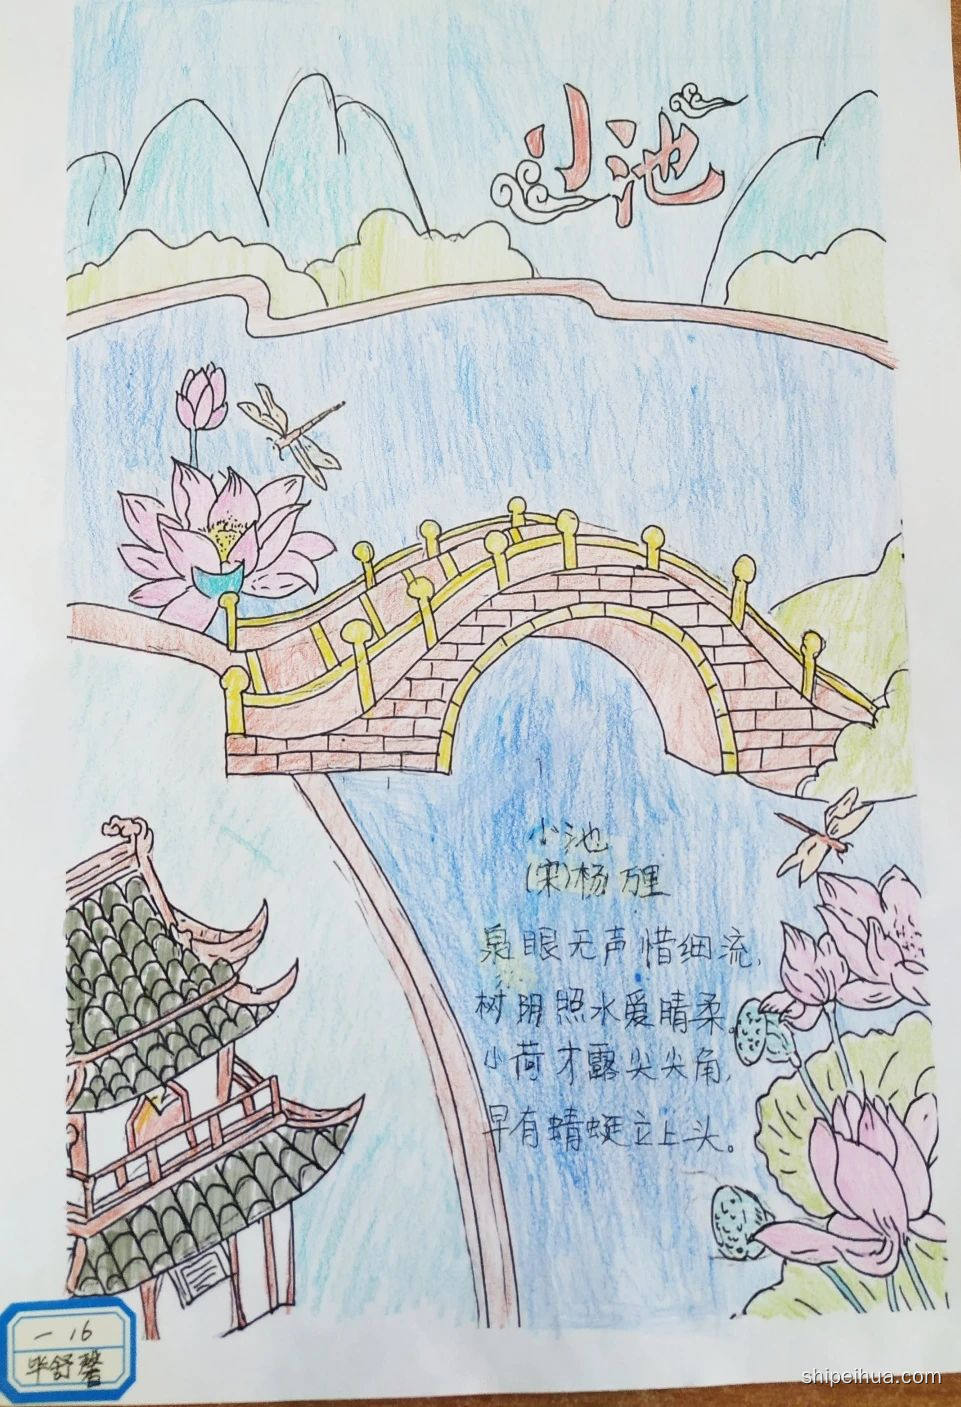 小池
小池
(宋)杨万里
泉眼无声惜细流,
树阴照水爱晴柔。
小荷才露尖尖角,
早有蜻蜓立上头。
一 16
毕舒馨
shipeihua.com